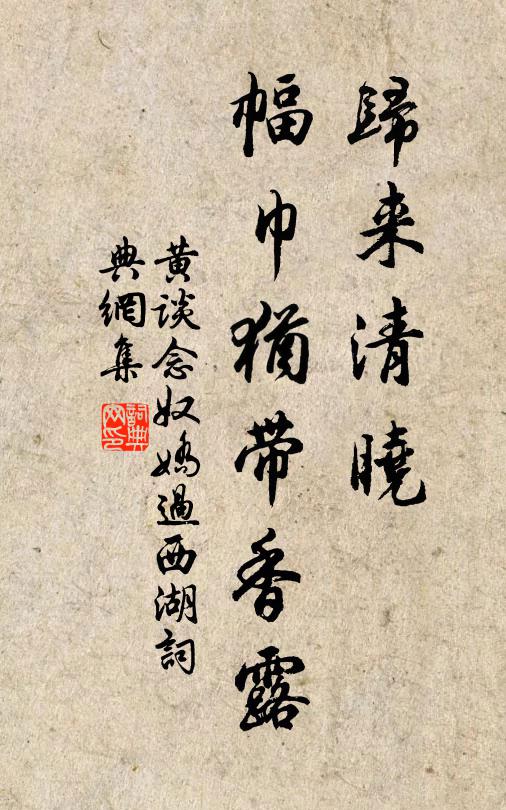 歸来清曉
幅巾猶帶香露
黃談念奴嬌過西湖詞
典網集
詞典網印